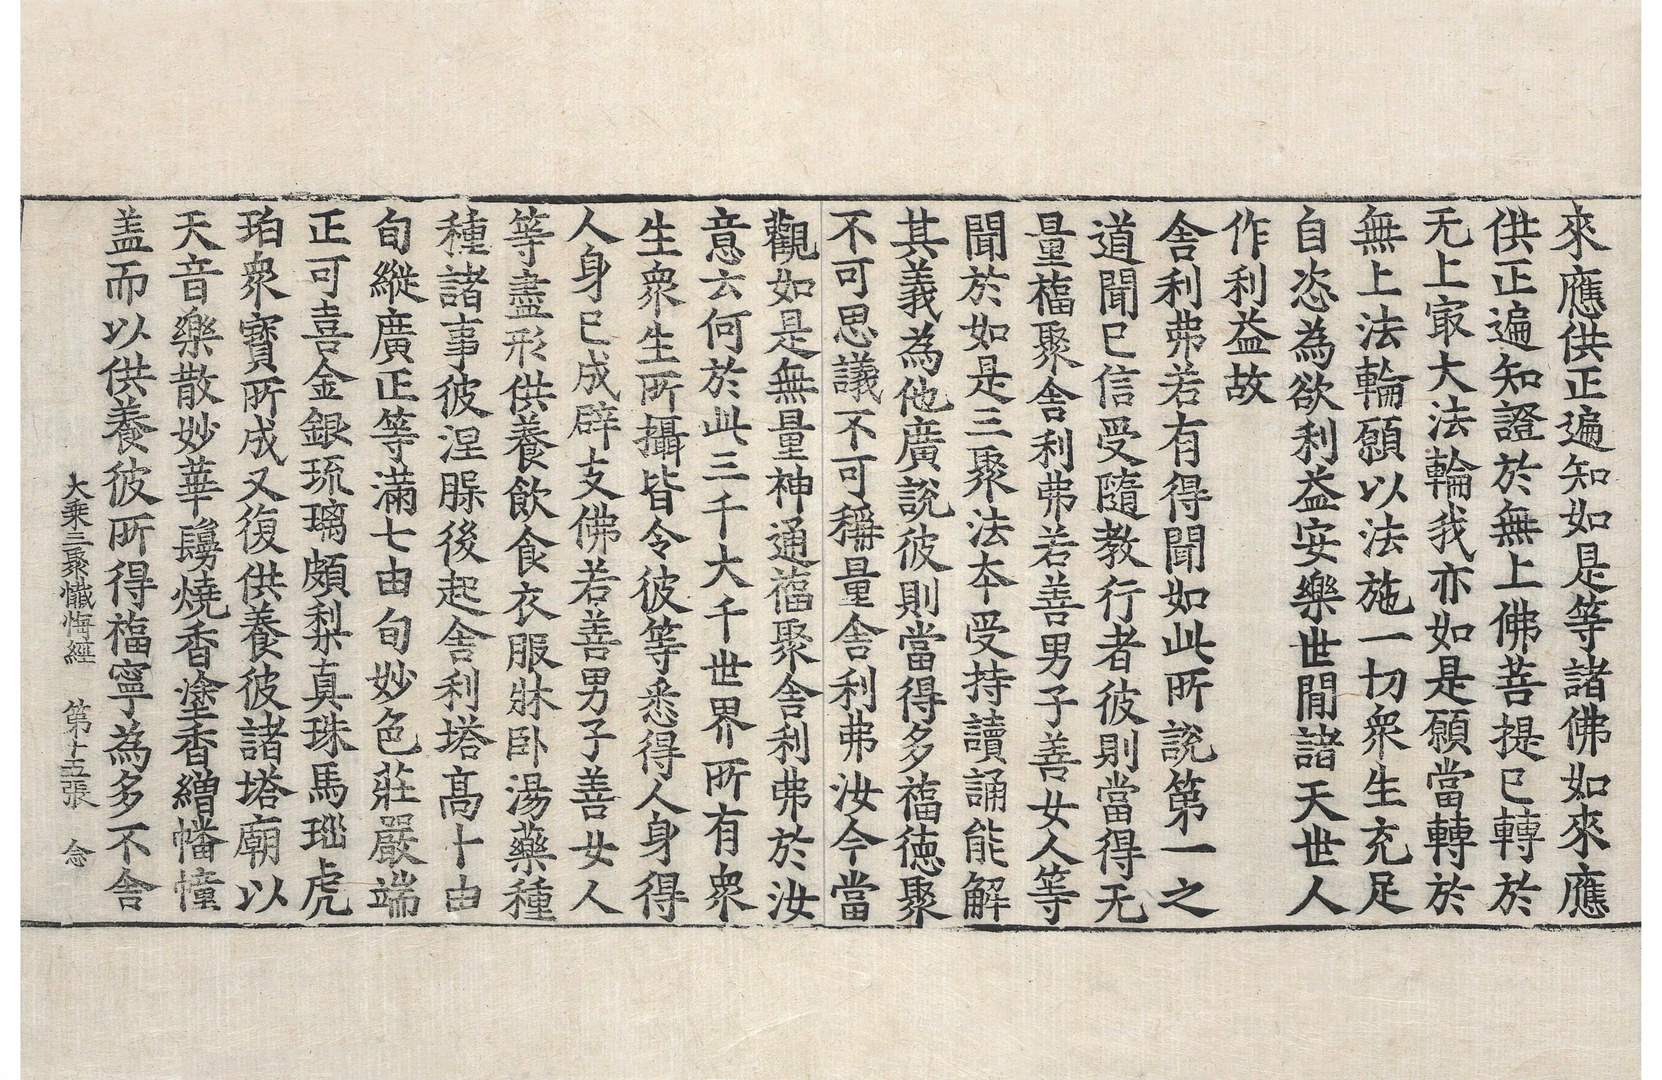 來應供正遍知如是等諸佛如來應
供正遍知證於無上佛菩提已轉於
无上㝡大法輪我亦如是願當轉於
無上法輪願以法施一切衆生充足
自恣為欲利益安樂世閒諸天世人
作利益故
舎利弗若有得聞如此所說第一之
道聞已信受隨教行者彼則當得无
量福聚舎利弗若善男子善女人等
聞於如是三聚法本受持讀誦能解
其義為他廣說彼則當得多福德聚
不可思議不可稱量舎利弗汝今當
觀如是無量神通福聚舎利弗於汝
意云何於此三千大千世界所有衆
生衆生所攝皆令彼等悉得人身得
人身已成辟支佛若善男子善女人
等盡形供養飲食衣服牀卧湯藥種
種諸事彼涅槃後起舎利塔高十由
旬縱廣正等滿七由旬妙色莊嚴端
正可喜金銀琉璃頗梨真珠馬瑙虎
珀衆寶所成又復供養彼諸塔廟以
天音樂散妙華鬘燒香塗香繒幡幢
盖而以供養彼所得福寧為多不舎
大乘三聚懺悔經 第十五張 念